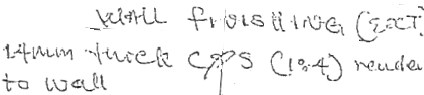 WALL FINISHING (EXT)
14mm thick CPS (1:4) render
to wall